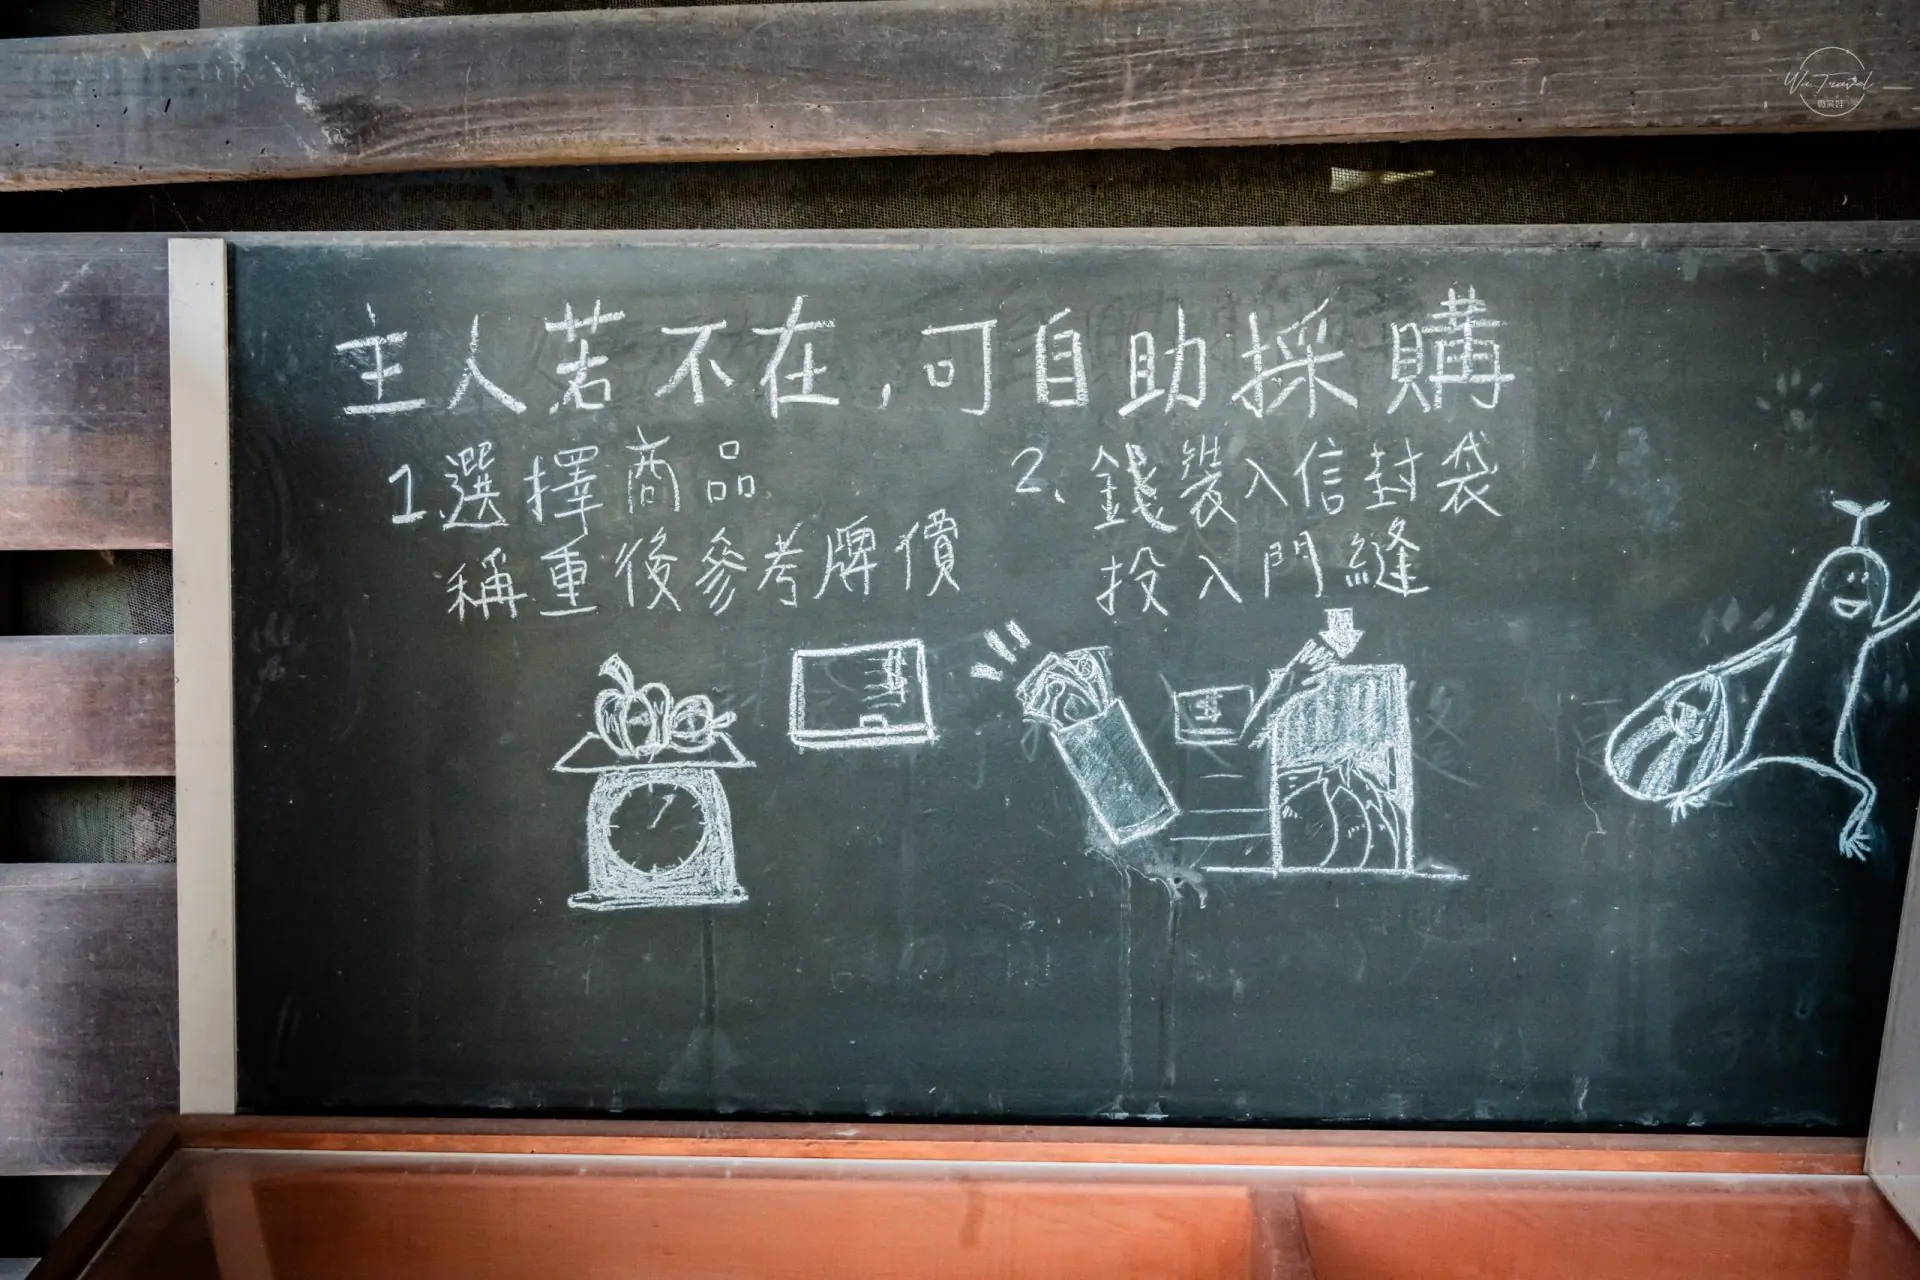 主人若不在，可自助採購
1.選擇商品
稱重後參考牌價
2、錢裝入信封袋
投入門縫
Wa Travel
微笑娃